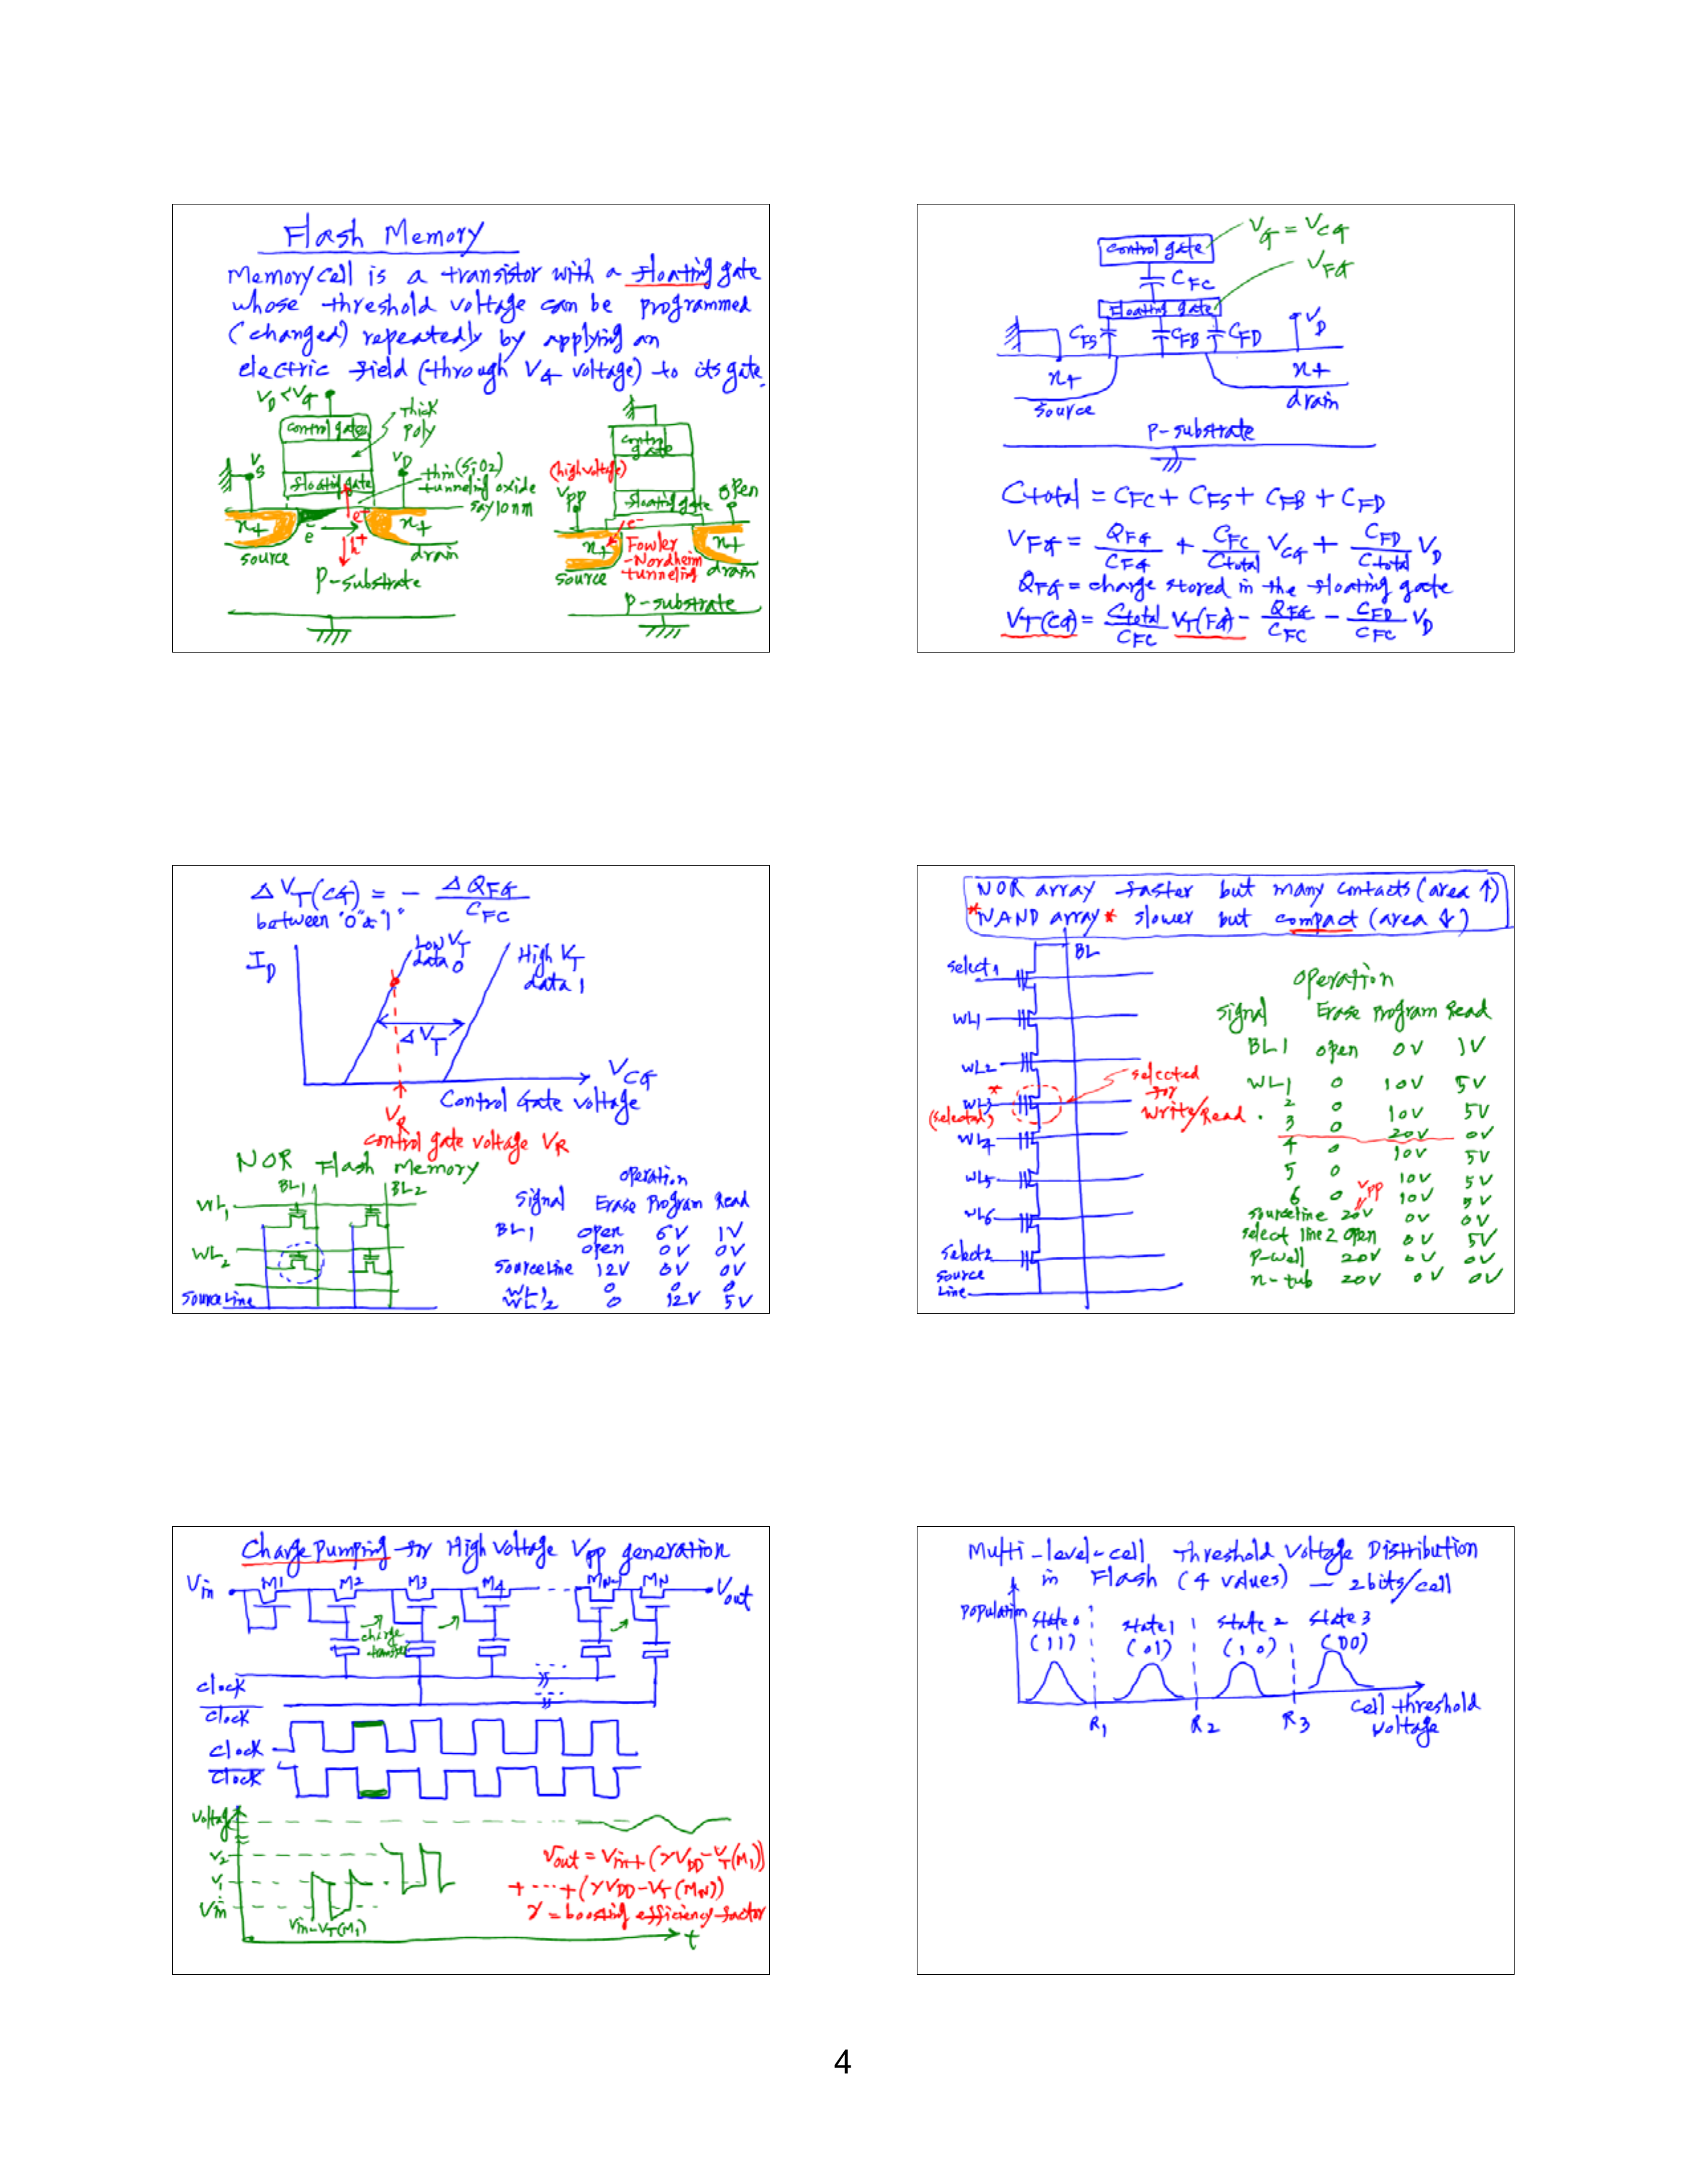 Flash Memory
Memory cell is a transistor with a floating gate
whose threshold voltage can be programmed
(changed) repeatedly by applying an
electric field (through VG voltage) to its gate.
VD < VG
control gate
Thick
poly
VS
floating gate
VD
thin (SiO2)
tunneling oxide
say 10nm
n+
e-
e-
h+
n+
source
drain
P-substrate
control
gate
(high voltage)
Vpp
floating gate
open
e-
n+
Fowler
-Nordheim
tunneling
n+
source
drain
P-substrate
VG = VCG
control gate
VFG
CFC
Floating gate
CFS
CFB
CFD
VD
n+
n+
source
drain
P-substrate
Ctotal = CFC + CFS + CFB + CFD
VFG = QFG/CFG + CFC/Ctotal VCG + CFD/Ctotal VD
QFG = charge stored in the floating gate
VT(CG) = Ctotal/CFC VT(FG) - QFG/CFC - CFD/CFC VD
Δ VT(CG) = - Δ QFG/CFC
between "0" & "1"
ID
Low VT
data 0
High VT
data 1
Δ VT
VCG
Control Gate voltage
VR
control gate voltage VR
NOR Flash Memory
BL1
BL2
WL1
WL2
Source Line
operation
Signal Erase Program Read
BL1 open 6V 1V
open 0V 0V
Source Line 12V 0V 0V
WL1 0 0 0
WL2 0 12V 5V
NOR array faster but many contacts (area ↑)
*NAND array* slower but compact (area ↓)
BL
Select1
WL1
WL2
WL3
(selected)
WL4
WL5
WL6
Select2
Source
Line
selected
for
Write/Read
operation
Signal Erase Program Read
BL1 open 0V 1V
WL1 0 10V 5V
2 0 10V 5V
3 0 20V 0V
4 0 10V 5V
5 0 10V 5V
6 0 10V 5V
Vpp
Source line 20V 0V 0V
Select line 2 open 0V 5V
P-well 20V 0V 0V
n-tub 20V 0V 0V
Charge Pumping for High Voltage Vpp generation
Vin M1 M2 M3 M4 MN-1 MN Vout
charge
transfer
clock
clock
clock
clock
Voltage
V2
V1
Vin
Vin-VT(M1)
t
Vout = Vin + (γVDD - VT(M1))
+ ---- + (γVDD - VT(MN))
γ = boosting efficiency factor
Multi-level-cell Threshold Voltage Distribution
in Flash (4 values) — 2bits/cell
Population
State 0
(11)
State 1
(01)
State 2
(10)
State 3
(00)
R1 R2 R3
Cell threshold
Voltage
4